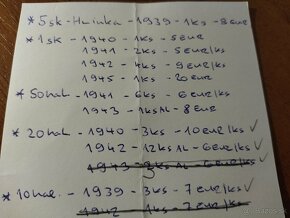 * 5sk - Hlinka - 1939 - 1ks - 8eur
* 1sk - 1940 - 1ks - 5eur
1941 - 2ks - 5eur/ks
1942 - 4ks - 9eur/ks
1945 - 1ks - 20eur
* 50hal - 1941 - 6ks - 6eur/ks
1943 - 1ksAL - 8eur
* 20hal - 1940 - 3ks - 10eur/ks ✓
1942 - 12ks - 6eur/ks ✓
1943 - 3ks AL - 6eur/ks
* 10hal. - 1939 - 3ks - 7eur/ks ✓
1942 - 1ks - 7eur/ks